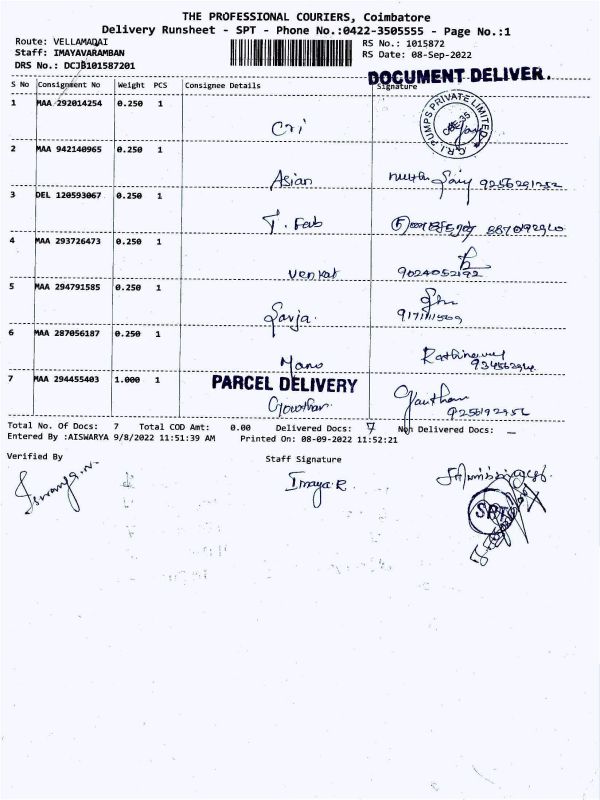 THE PROFESSIONAL COURIERS, Coimbatore
Delivery Runsheet - SPT - Phone No.:0422-3505555 - Page No.:1
Route: VELLAMADAI
RS No.: 1015872
Staff: IMAYAVARAMBAN
RS Date: 08-Sep-2022
DRS No.: DCJB101587201
DOCUMENT DELIVER.
S No Consignment No Weight PCS Consignee Details Signature
1 MAA 292014254 0.250 1
Cri
C.R.I. PUMPS PRIVATE LIMITED
2 MAA 942140965 0.250 1
Asian
3 DEL 120593067 0.250 1
T. Fab
4 MAA 293726473 0.250 1
Venkat 9024052192
5 MAA 294791585 0.250 1
Sarja.
6 MAA 287056187 0.250 1
Mano
7 MAA 294455403 1.000 1
PARCEL DELIVERY
Gowthan Gauthan
Total No. Of Docs: 7 Total COD Amt: 0.00 Delivered Docs: 7 Non Delivered Docs: —
Entered By :AISWARYA 9/8/2022 11:51:39 AM Printed On: 08-09-2022 11:52:21
Verified By Staff Signature
Imaya.R